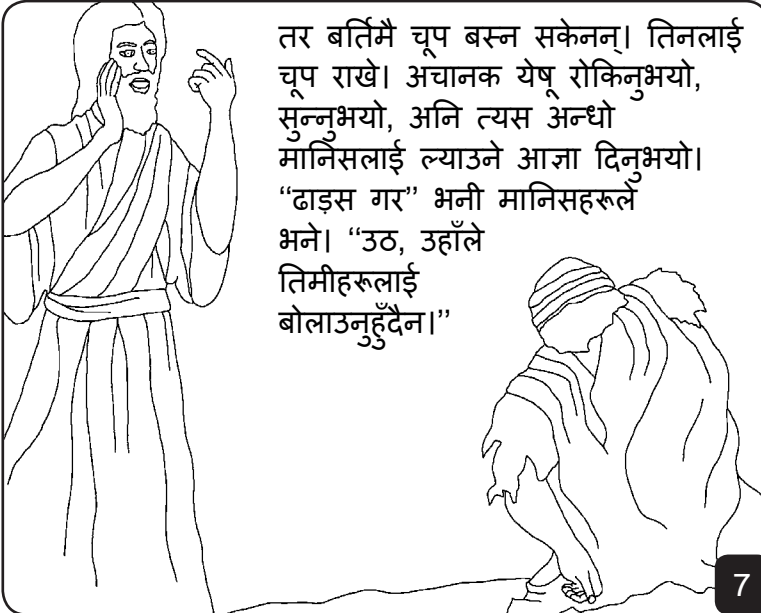 तर बर्तिमै चूप बस्न सकेनन्। तिनलाई
चूप राखे। अचानक येषू रोकिनुभयो,
सुन्नुभयो, अनि त्यस अन्धो
मानिसलाई ल्याउने आज्ञा दिनुभयो।
“ढाड़स गर” भनी मानिसहरूले
भने। “उठ, उहाँले
तिमीहरूलाई
बोलाउनुहुँदैन।”
7